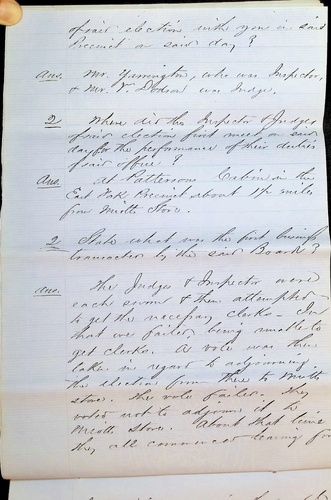 of said election with you in said
Precinct on said day?
Ans. Mr. Yarrington, who was Inspector,
& Mr. Dodson was Judge.
Q Where did the Inspector & Judges
of said election first meet on said
day for the performance of their duties
of said office?
Ans. At Pattersons Cabin in the
East Fork Precinct about 1½ miles
from Store.
Q State what was the first business
transacted by the said Board?
Ans. The Judges & Inspector were
each sworn & then attempted
to get the necessary clerks. In
that we failed, being unable to
get clerks. A vote was then
taken in regard to adjourning
the election from there to
store. The vote failed. They
voted not to adjourn it to
store. About that time
they all commenced leaving for